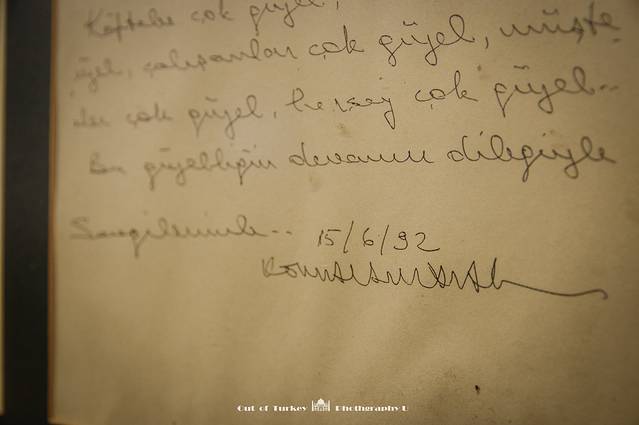 Köfteler çok güzel,
üzel, çalışanlar çok güzel, müşte
ler çok güzel, herşey çok güzel..
Bu güzelliğin devamı dileğiyle
Sevgilerimle.. 15/6/92
Out of Turkey Phothgraphy U